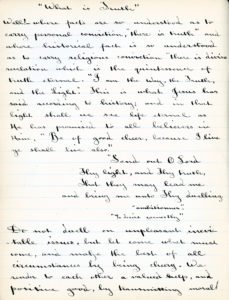 "What is Truth"
Well: where facts are so understood as to
carry personal conviction, there is truth" and
where historical fact is so understood
as to carry religious conviction there is divine
revelation which is the quintessence of
truth eternal. "I am the Way, the Truth,
and the Light." This is what Jesus has
said according to history; and in that
light shall we see life eternal as
He has promised to all believers in
him; "Be of good cheer, because I live
ye shall live also."
"Send out O Lord
Thy light, and thy truth,
that they may lead me
and bring me unto Thy dwelling.
"
"To live
Do not dwell on unpleasant irrevi-
table, issues, but let come what must
come, and make the best of all
circumstance by being cheery. We
render to each other a valued help, and
positive good, by transmitting moral